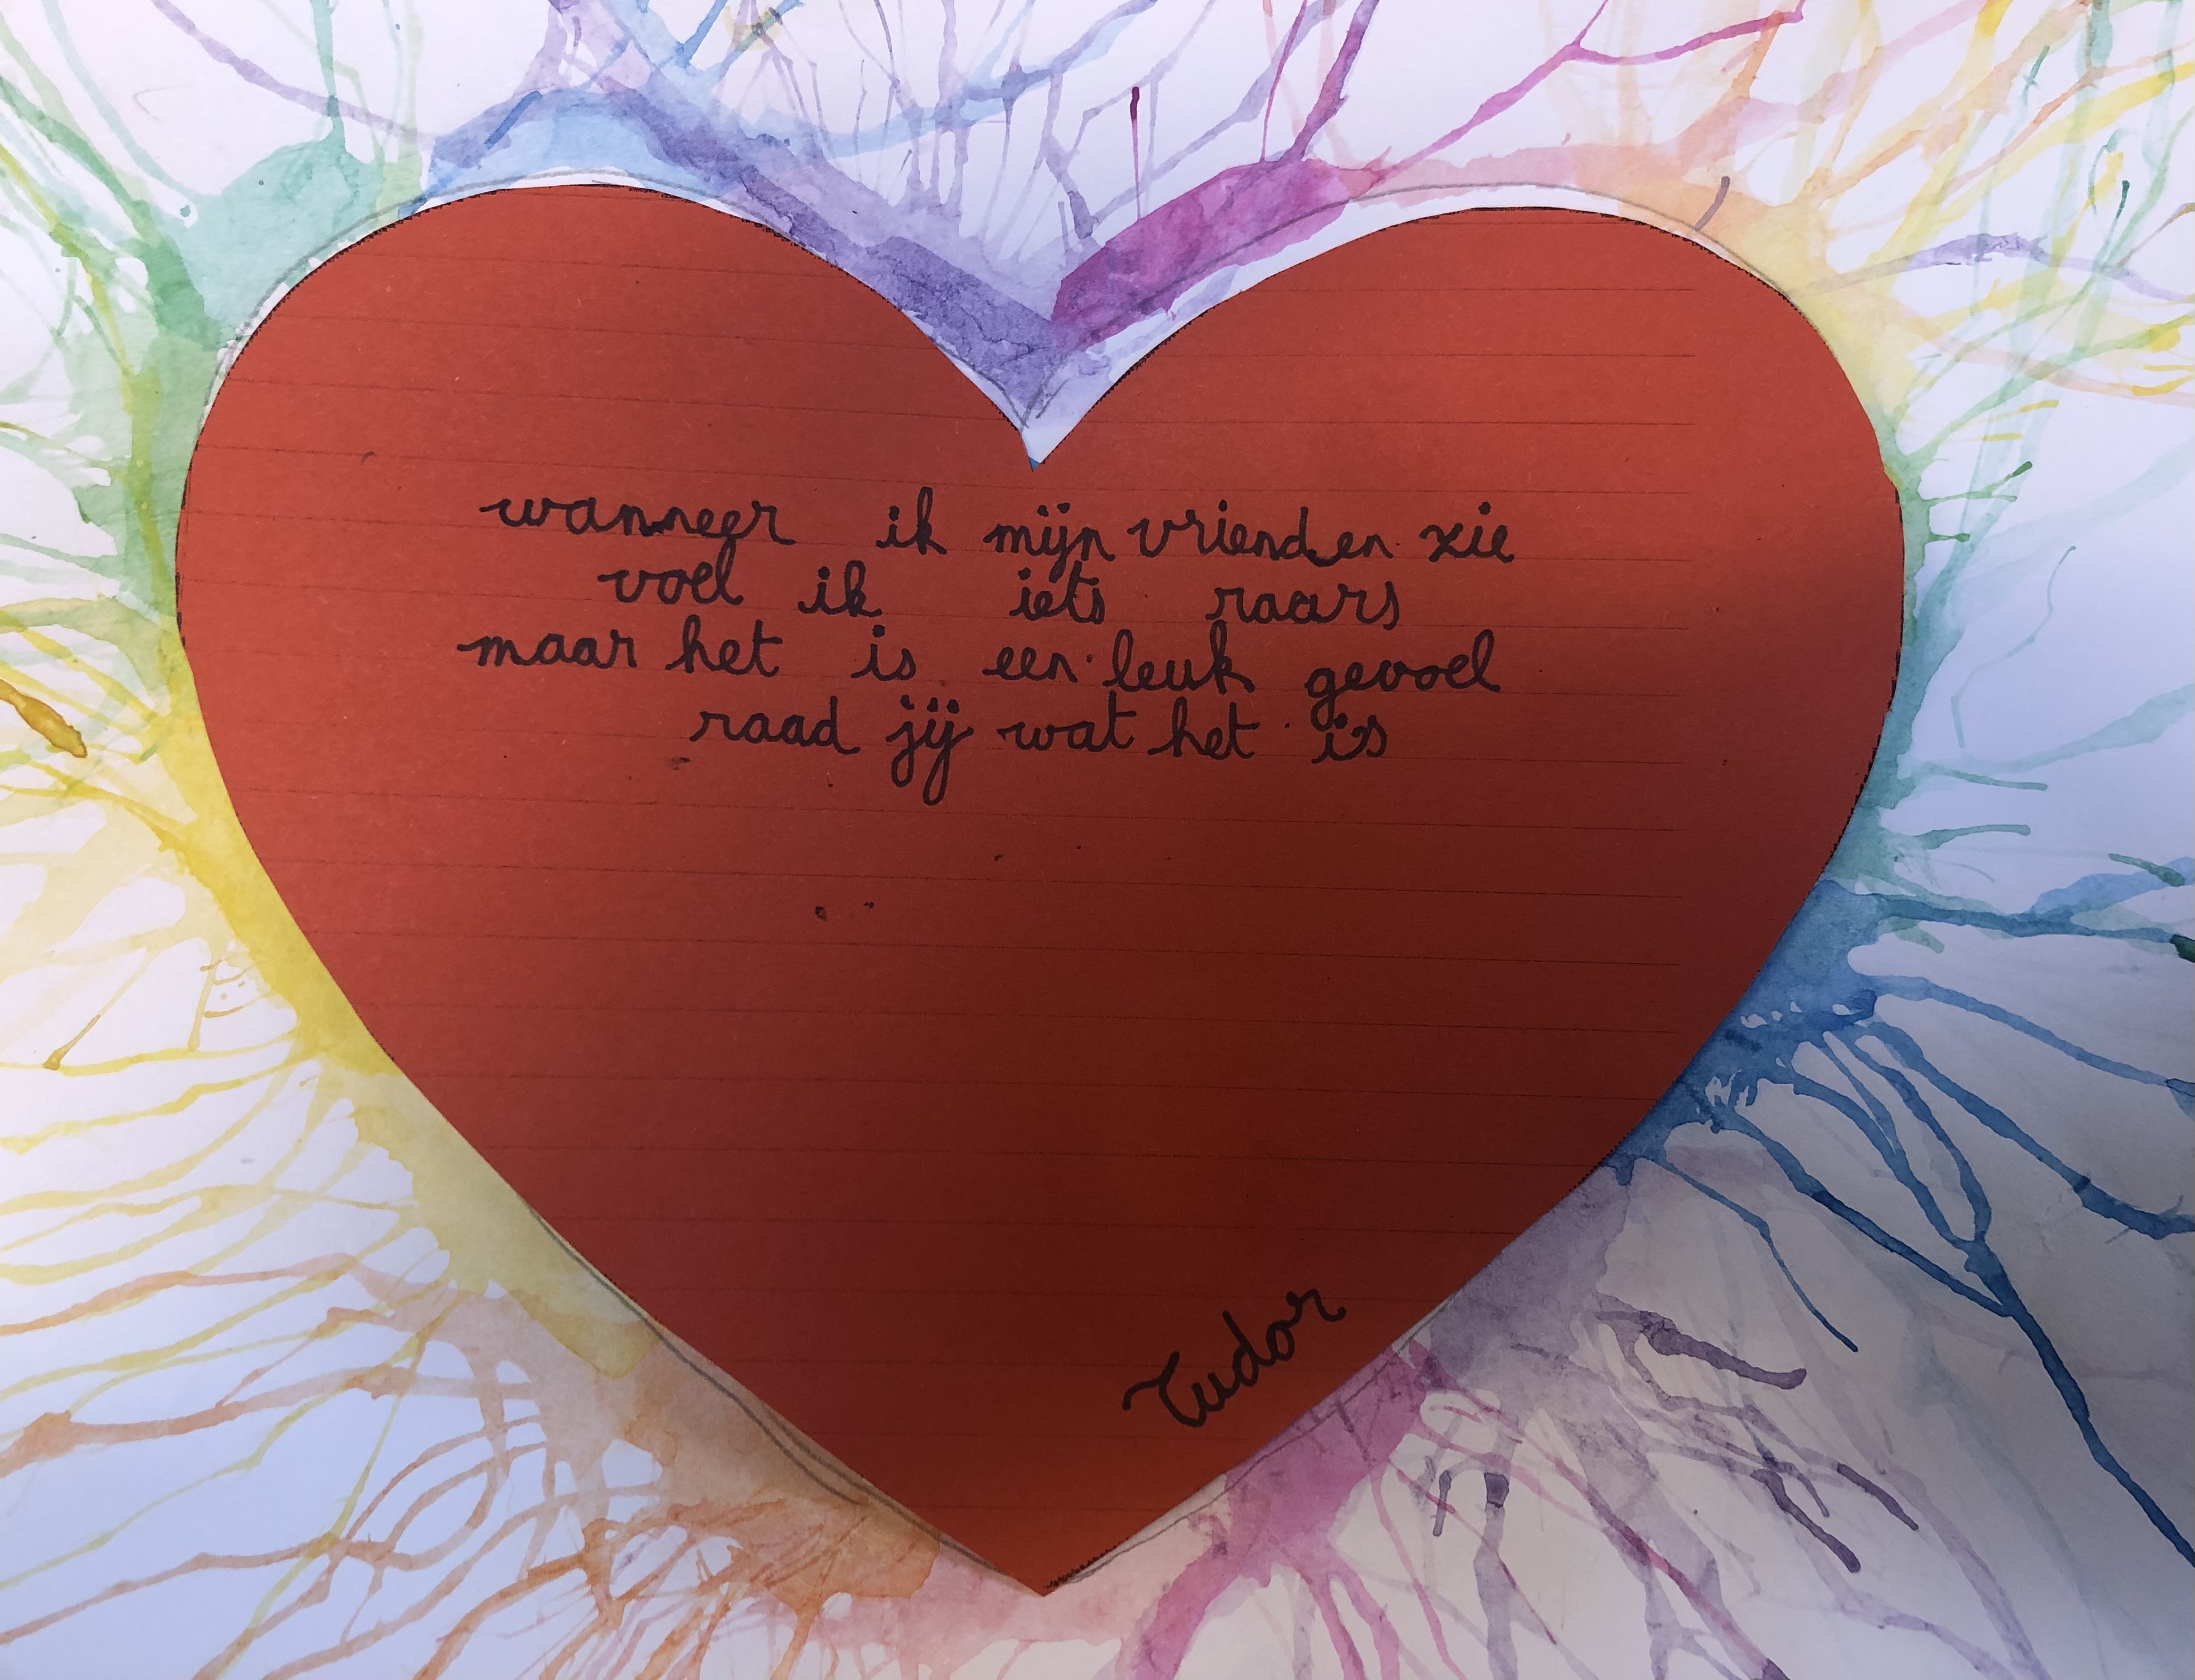 wanneer ik mijn vrienden zie
voel ik iets raars
maar het is een leuk gevoel
raad jij wat het is
Tudor